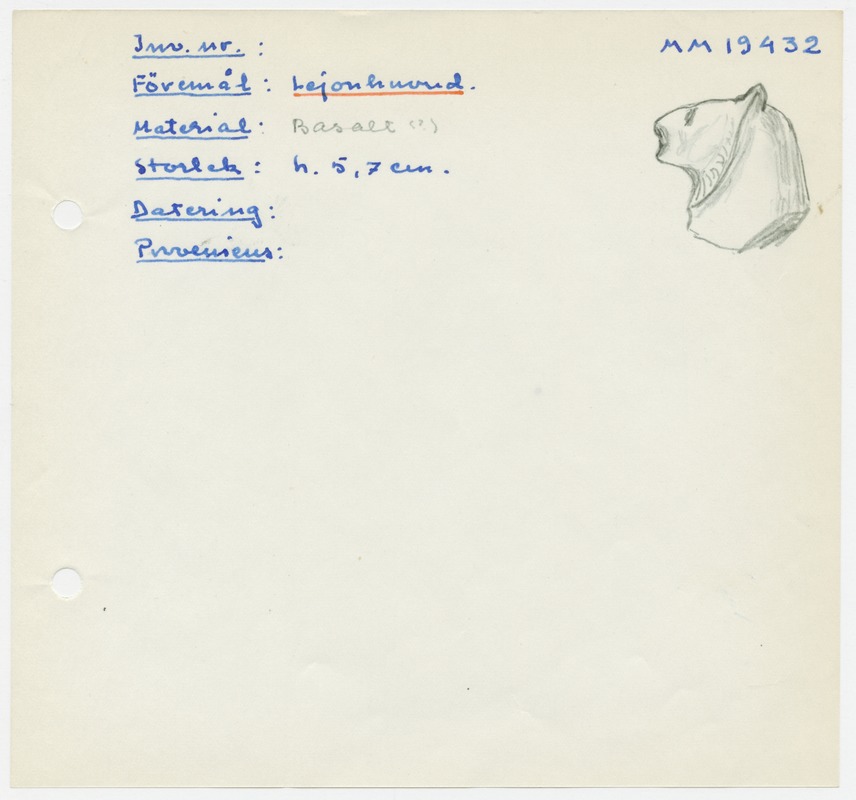 Inv. nr. : MM 19432
Föremål : Lejonhuvud.
Material : Basalt (?)
Storlek : h. 5,7 cm.
Datering :
Proveniens :